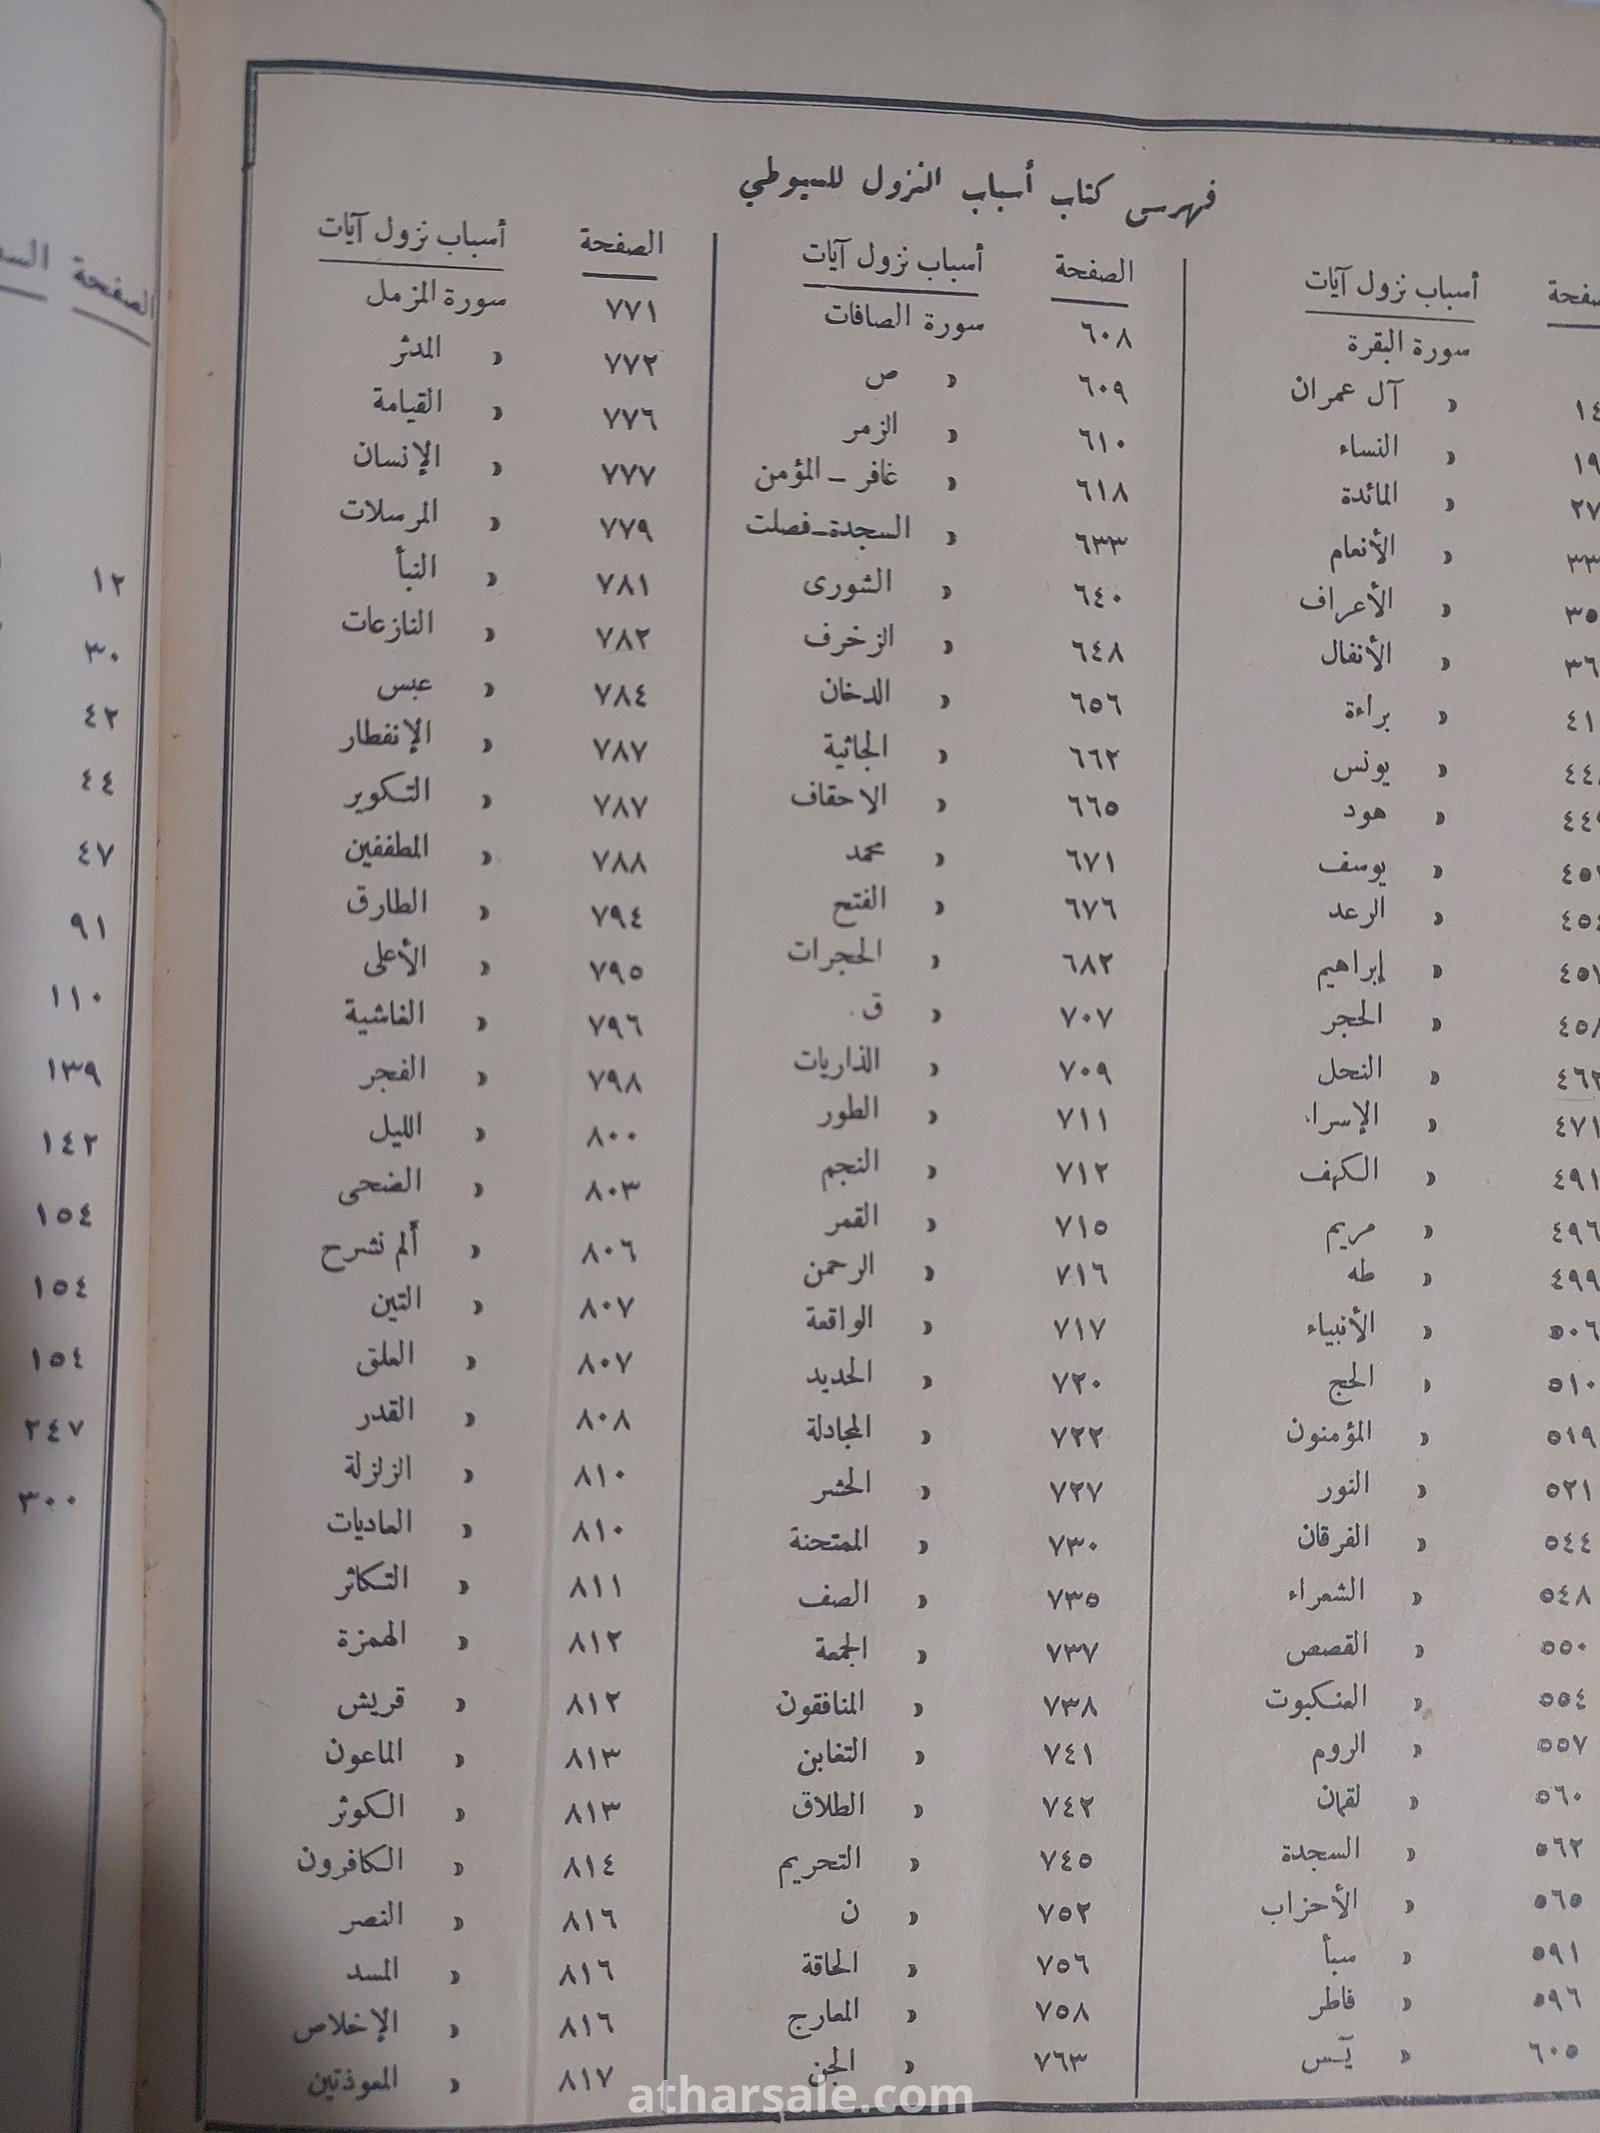 فهرس كتاب أسباب النزول للسيوطي
أسباب نزول آيات
سورة البقرة
» آل عمران
» النساء
» المائدة
» الأنعام
» الأعراف
» الأنفال
» براءة
» يونس
» هود
» يوسف
» الرعد
» إبراهيم
» الحجر
» النحل
٤٧١ » الإسراء
٤٩١ » الكهف
٤٩٦ » مريم
٤٩٩ » طه
٥٠٦ » الأنبياء
٥١٠ » الحج
٥١٩ » المؤمنون
٥٢١ » النور
٥٤٤ » الفرقان
٥٤٨ » الشعراء
٥٥٠ » القصص
٥٥٤ » العنكبوت
٥٥٧ » الروم
٥٦٠ » لقمان
٥٦٢ » السجدة
٥٦٥ » الأحزاب
٥٩١ » سبأ
٥٩٦ » فاطر
٦٠٥ » يٓس
الصفحة أسباب نزول آيات
٦٠٨ سورة الصافات
٦٠٩ » ص
٦١٠ » الزمر
٦١٨ » غافر – المؤمن
٦٣٣ » السجدة–فصلت
٦٤٠ » الشورى
٦٤٨ » الزخرف
٦٥٦ » الدخان
٦٦٢ » الجاثية
٦٦٥ » الاحقاف
٦٧١ » محمد
٦٧٦ » الفتح
٦٨٢ » الحجرات
٧٠٧ » ق
٧٠٩ » الذاريات
٧١١ » الطور
٧١٢ » النجم
٧١٥ » القمر
٧١٦ » الرحمن
٧١٧ » الواقعة
٧٢٠ » الحديد
٧٢٢ » المجادلة
٧٢٧ » الحشر
٧٣٠ » الممتحنة
٧٣٥ » الصف
٧٣٧ » الجمعة
٧٣٨ » المنافقون
٧٤١ » التغابن
٧٤٢ » الطلاق
٧٤٥ » التحريم
٧٥٢ » ن
٧٥٦ » الحاقة
٧٥٨ » المعارج
٧٦٣ » الجن
الصفحة أسباب نزول آيات
٧٧١ سورة المزمل
٧٧٢ » المدثر
٧٧٦ » القيامة
٧٧٧ » الإنسان
٧٧٩ » المرسلات
٧٨١ » النبأ
٧٨٢ » النازعات
٧٨٤ » عبس
٧٨٧ » الإنفطار
٧٨٧ » التكوير
٧٨٨ » المطففين
٧٩٤ » الطارق
٧٩٥ » الأعلى
٧٩٦ » الغاشية
٧٩٨ » الفجر
٨٠٠ » الليل
٨٠٣ » الضحى
٨٠٦ » ألم نشرح
٨٠٧ » التين
٨٠٧ » العلق
٨٠٨ » القدر
٨١٠ » الزلزلة
٨١٠ » العاديات
٨١١ » التكاثر
٨١٢ » الهمزة
٨١٢ » قريش
٨١٣ » الماعون
٨١٣ » الكوثر
٨١٤ » الكافرون
٨١٦ » النصر
٨١٦ » المسد
٨١٦ » الإخلاص
٨١٧ » المعوذتين
الصفحة
١٢
٣٠
٤٢
٤٤
٤٧
٩١
١١٠
١٣٩
١٤٢
١٥٤
١٥٤
١٥٤
٢٤٧
٣٠٠
atharsale.com